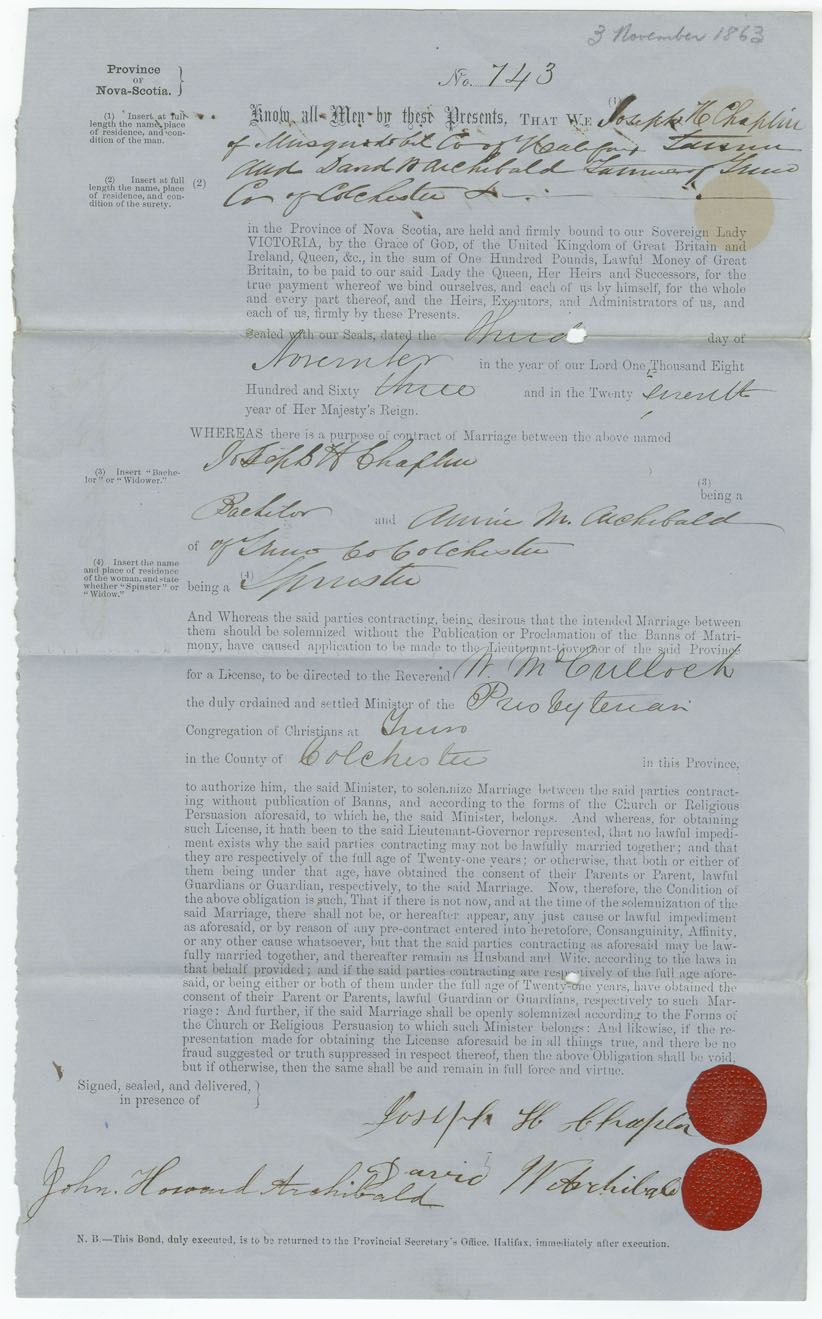 3 November 1863
Province
OF
Nova-Scotia.
No. 743
(1) Insert at full
length the name, place
of residence, and con-
dition of the man.
Know all Men by these Presents, THAT WE (1) Joseph H Chaplin
of Musquodobit Co of Halifax Farmer
(2) Insert at full
length the name, place
of residence, and con-
dition of the surety.
(2) and David W Archibald Farmer of Truro
Co of Colchester
in the Province of Nova Scotia, are held and firmly bound to our Sovereign Lady
VICTORIA, by the Grace of God, of the United Kingdom of Great Britain and
Ireland, Queen, &c., in the sum of One Hundred Pounds, Lawful Money of Great
Britain, to be paid to our said Lady the Queen, Her Heirs and Successors, for the
true payment whereof we bind ourselves, and each of us by himself, for the whole
and every part thereof, and the Heirs, Executors, and Administrators of us, and
each of us, firmly by these Presents.
Sealed with our Seals, dated the third day of
November in the year of our Lord One Thousand Eight
Hundred and Sixty three and in the Twenty seventh
year of Her Majesty's Reign.
WHEREAS there is a purpose of contract of Marriage between the above named
Joseph H Chaplin
(3) Insert "Bache-
lor" or "Widower."
(3)
being a
Bachelor and Annie M. Archibald
of of Truro Co Colchester
(4) Insert the name
and place of residence
of the woman, and state
whether "Spinster" or
"Widow."
being a (4) Spinster
And Whereas the said parties contracting, being desirous that the intended Marriage between
them should be solemnized without the Publication or Proclamation of the Banns of Matri-
mony, have caused application to be made to the Lieutenant-Governor of the said Province
for a License, to be directed to the Reverend W. McCulloch
the duly ordained and settled Minister of the Presbyterian
Congregation of Christians at Truro
in the County of Colchester in this Province,
to authorize him, the said Minister, to solemnize Marriage between the said parties contract-
ing without publication of Banns, and according to the forms of the Church or Religious
Persuasion aforesaid, to which he, the said Minister, belongs. And whereas, for obtaining
such License, it hath been to the said Lieutenant-Governor represented, that no lawful impedi-
ment exists why the said parties contracting may not be lawfully married together; and that
they are respectively of the full age of Twenty-one years; or otherwise, that both or either of
them being under that age, have obtained the consent of their Parents or Parent, lawful
Guardians or Guardian, respectively, to the said Marriage. Now, therefore, the Condition of
the above obligation is such, That if there is not now, and at the time of the solemnization of the
said Marriage, there shall not be, or hereafter appear, any just cause or lawful impediment
as aforesaid, or by reason of any pre-contract entered into heretofore, Consanguinity, Affinity,
or any other cause whatsoever, but that the said parties contracting as aforesaid may be law-
fully married together, and thereafter remain as Husband and Wife, according to the laws in
that behalf provided; and if the said parties contracting are respectively of the full age afore-
said, or being either or both of them under the full age of Twenty-one years, have obtained the
consent of their Parent or Parents, lawful Guardian or Guardians, respectively to such Mar-
riage: And further, if the said Marriage shall be openly solemnized according to the Forms of
the Church or Religious Persuasion to which such Minister belongs: And likewise, if the re-
presentation made for obtaining the License aforesaid be in all things true, and there be no
fraud suggested or truth suppressed in respect thereof, then the above Obligation shall be void,
but if otherwise, then the same shall be and remain in full force and virtue.
Signed, sealed, and delivered,
in presence of
Joseph H Chaplin
John Howard Archibald
David W Archibald
N. B.—This Bond, duly executed, is to be returned to the Provincial Secretary's Office, Halifax, immediately after execution.